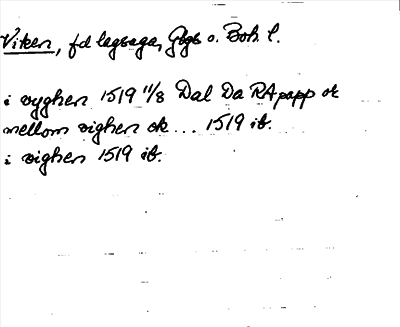 Viken, fd lagsaga, Gbgs o. Boh. l.
i vyghen 1519 11/8 Dal Da RA papp or
mellom vighen ok ... 1519 ib.
i vighen 1519 ib.